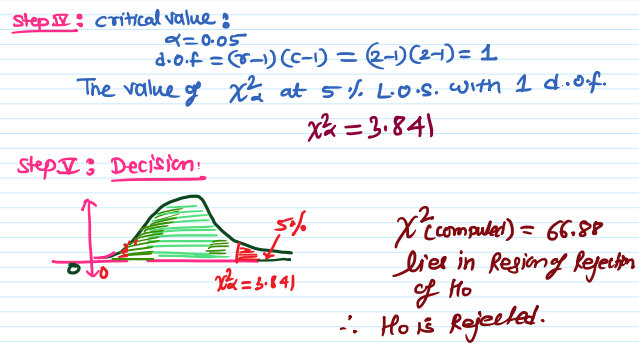 Step IV : Critical value :
α = 0.05
d.o.f = (r-1)(c-1) = (2-1)(2-1) = 1
The value of χ²α at 5 % L.O.S. with 1 d.o.f.
χ²α = 3.841
Step V : Decision:
5%
0 0
χ²α = 3.841
χ² (computed) = 66.88
lies in Region of Rejection
of Ho
∴ Ho is Rejected.